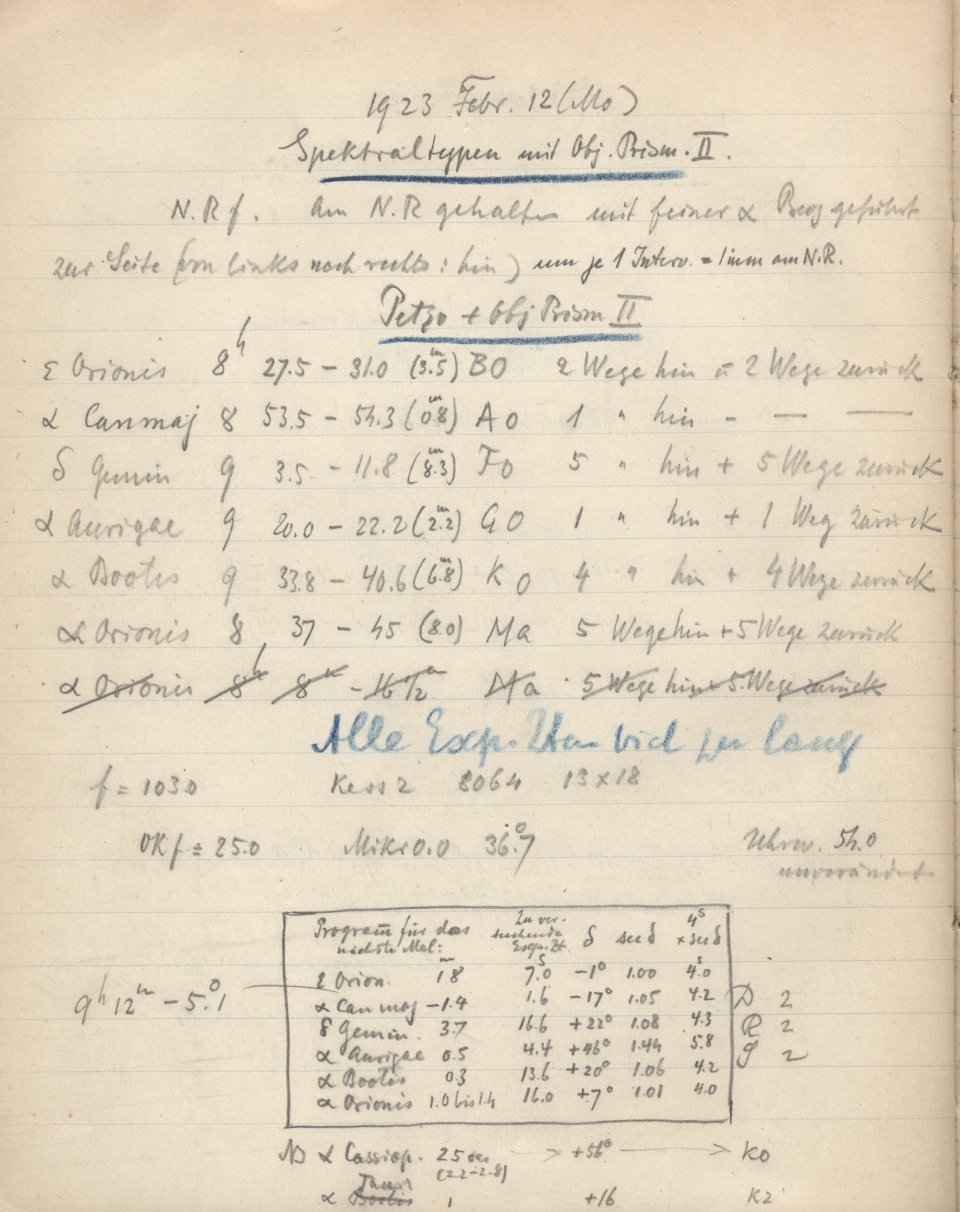 1923 Febr. 12 (Mo)
Spektraltypen mit Obj. Prism. II.
N.R f. Am N.R gehalten mit feiner α Bewg geführt
zur Seite (von links nach rechts: hin) um je 1 Interv. = 1mm am N.R.
Petzo + Obj Prism II
ε Orionis 8h 27.5 – 31.0 (3.5m) B0 2 Wege hin u 2 Wege zurück
α Canmaj 8 53.5 – 54.3 (0.8m) A0 1 " hin – — —
δ Gemin 9 3.5 – 11.8 (8.3m) F0 5 " hin + 5 Wege zurück
α Aurigae 9 20.0 – 22.2 (2.2m) G0 1 " hin + 1 Weg zurück
α Bootis 9 33.8 – 40.6 (6.8m) K0 4 " hin + 4 Wege zurück
α Orionis 8 37 – 45 (8.0) Ma 5 Wege hin + 5 Wege zurück
α Orionis 8h 8m – 16 1/2m Ma 5 Wege hin + 5 Wege zurück
Alle Exp. Zten viel zu lang
f = 103.0 Kass 2 8064 13 x 18
OKf = 25.0 Mikr 0.0 36.°7 Uhrw. 54.0
unverändert
Programm für das nächste Mal: Zu versuchende Exp. Zt. δ sec δ 4s × sec δ
ε Orion. 1.8m 7.0s –1° 1.00 4.0s
9h 12m – 5.°1
α Can maj –1.4 1.6 –17° 1.05 4.2 D 2
δ Gemin. 3.7 16.6 +22° 1.08 4.3 R 2
α Aurigae 0.5 4.4 +46° 1.44 5.8 G 2
α Bootis 0.3 13.6 +20° 1.06 4.2
α Orionis 1.0 bis 1.4 16.0 +7° 1.01 4.0
NB α Cassiop. 2.5 var (2.2–2.8) +56° K0
α Bootis Tauri 1 +16 K2